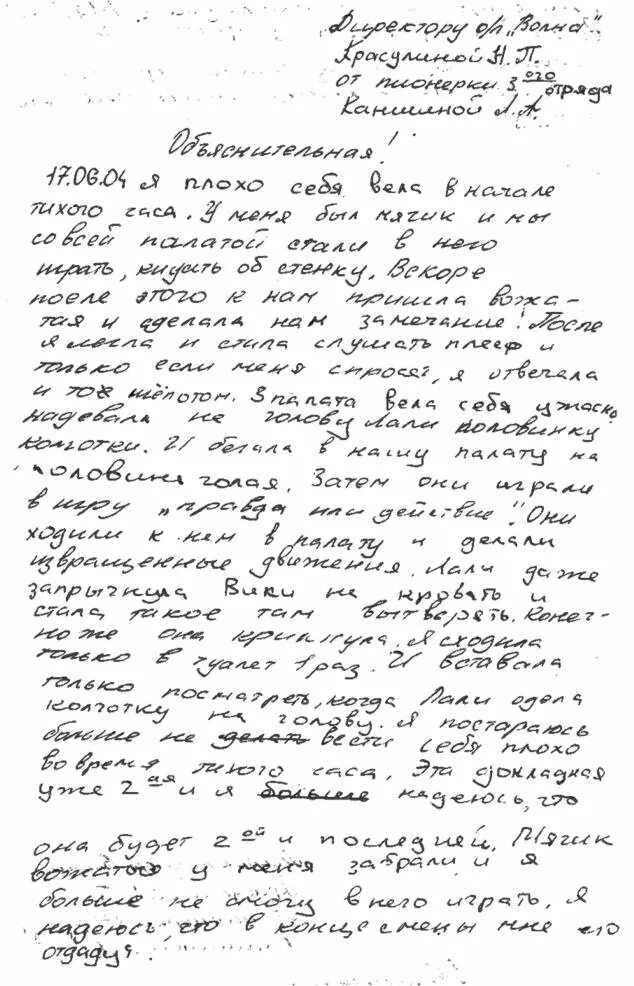 Директору о/л „Волна".
Красулиной Н. П.
от пионерки 3 ого отряда
Каншиной Л. А.
Объяснительная!
17.06.04 я плохо себя вела в начале
тихого часа. У меня был мячик и мы
со всей палатой стали в него
играть, кидать об стенку. Вскоре
после этого к нам пришла вожа-
тая и сделала нам замечание! После
я легла и стала слушать плеер и
только если меня спросят, я отвечала
и то шёпотом. 3 палата вела себя ужасно,
надевала на голову Лали половинку
колготки. И бегала в нашу палату на
половину голая. Затем они играли
в игру „правда или действие". Они
ходили к нам в палату и делали
извращенные движения. Лали даже
запрыгнула Вики на кровать и
стала такое там вытверять. Конеч-
но же она крикнула. Я сходила
только в туалет 1 раз. И вставала
только посматреть, когда Лали одела
колготку на голову. Я постараюсь
больше не делать вести себя плохо
во время тихого часа. Эта докладная
уже 2 ая и я больше надеюсь, что
она будет 2 ой и последней. Мячик
вожатые у меня забрали и я
больше не смогу в него играть. Я
надеюсь, что в конце смены мне его
отдадут.